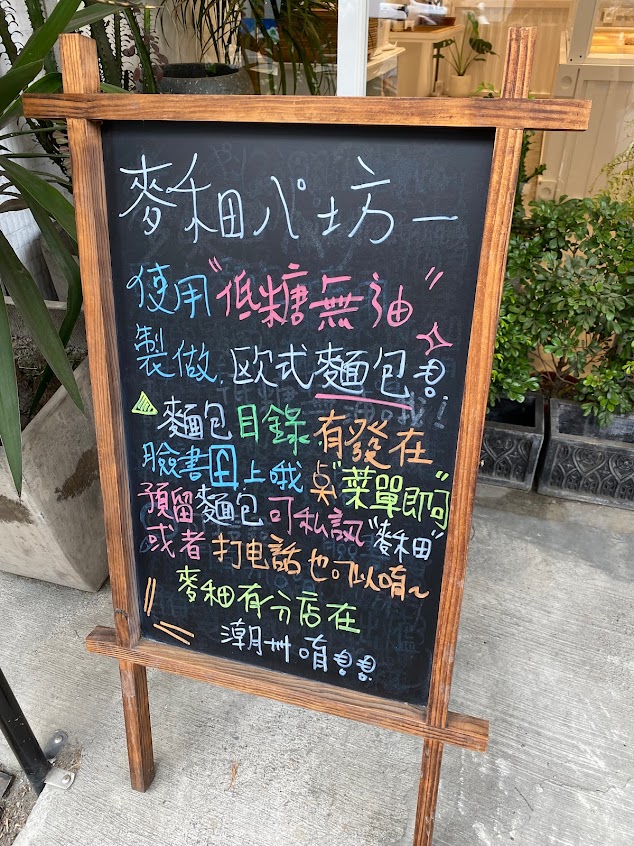 麥和田パ坊一
使用"低糖無油"
製做,欧式麵包!
麵包目錄有發在
臉書上哦 点"菜單即可
預留麵包可私訊"麥和田"
或者打电話也可以唷~
麥和田有分店在
潮州唷!!